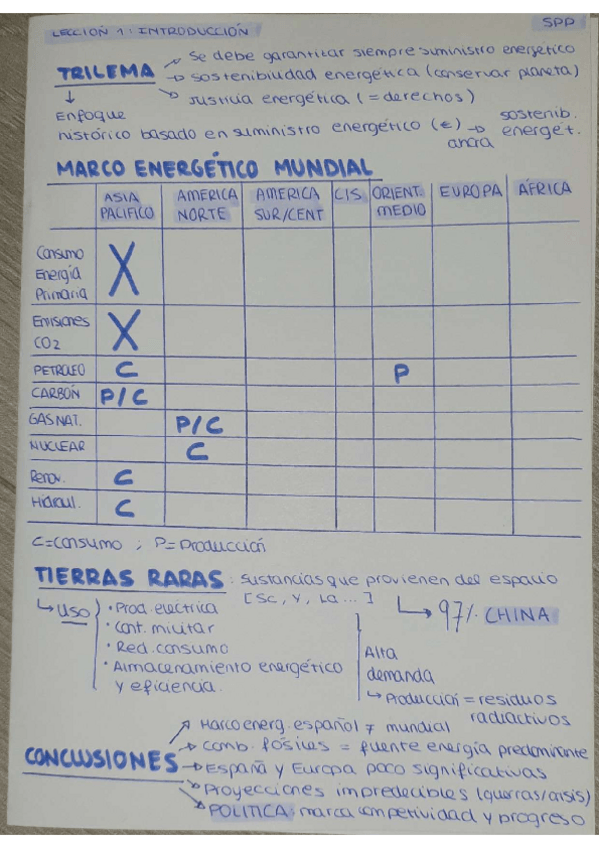 LECCIÓN 1: INTRODUCCIÓN
SPP
TRILEMA → Se debe garantizar siempre suministro energético
→ Sostenibilidad energética (conservar planeta)
→ Justicia energética (= derechos)
↓
Enfoque
histórico basado en suministro energético (€) → sostenib. energét.
ahora
MARCO ENERGÉTICO MUNDIAL
ASIA PACIFICO | AMERICA NORTE | AMERICA SUR/CENT | CIS | ORIENT. MEDIO | EUROPA | ÁFRICA
Consumo Energía Primaria X
Emisiones CO2 X
PETROLEO C P
CARBÓN P/C
GAS NAT. P/C
NUCLEAR C
Renov. C
Hidraul. C
C=Consumo ; P=Producción
TIERRAS RARAS: Sustancias que provienen del espacio
[Sc, Y, La ...] → 97% CHINA
↳ USO
· Prod. electrica
· Cont. militar
· Red. consumo
· Almacenamiento energético
y eficiencia.
Alta
demanda
↳ Producción = residuos
radiactivos
CONCLUSIONES → Marco energ. español ≠ mundial
→ Comb. fósiles = fuente energía predominante
→ España y Europa poco significativas
→ Proyecciones impredecibles (guerras/crisis)
→ POLITICA: marca competividad y progreso